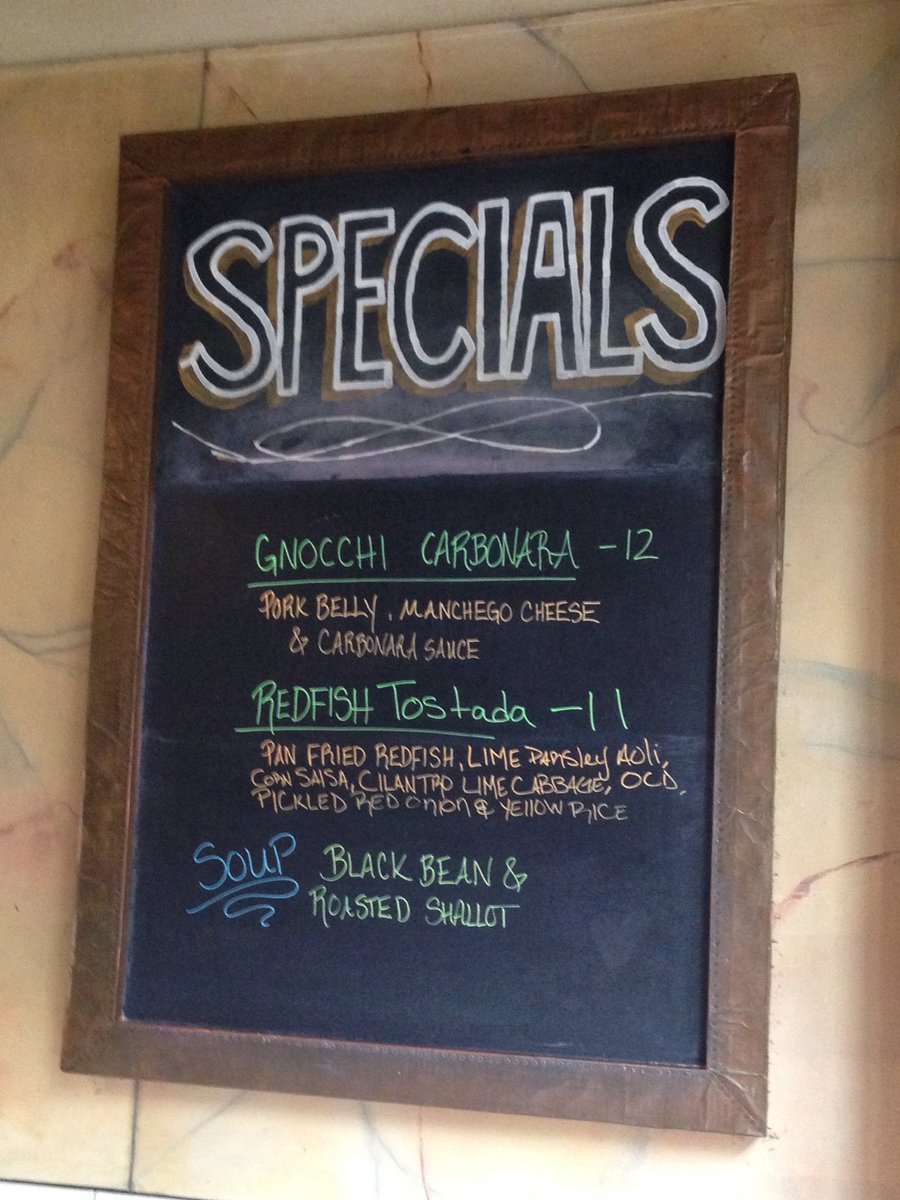 SPECIALS
GNOCCHI CARBONARA - 12
PORK BELLY, MANCHEGO CHEESE
& CARBONARA SAUCE
REDFISH Tostada - 11
PAN FRIED REDFISH, LIME PARSley AOli,
CORN SALSA, CILANTRO LIME CABBAGE, OCD,
PICKLED RED ONION & YEllOW RICE
SOUP BLACK BEAN &
ROASTED SHALLOT